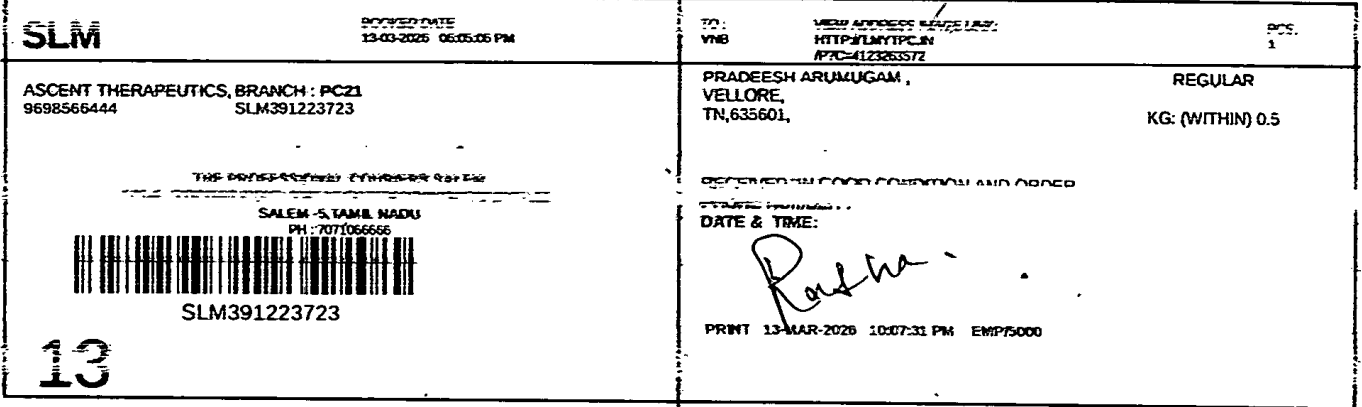 SLM
BOOKED DATE
13-03-2026 05:05:05 PM
ASCENT THERAPEUTICS, BRANCH : PC21
9698566444 SLM391223723
THE PROFESSIONAL COURIERS
SALEM -5, TAMIL NADU
PH :7071066666
SLM391223723
13
TO :
VNB
VIEW ADDRESS IMAGE LINK:
HTTP://LMYTPC.IN
/P?C=4123263572
PCS.
1
PRADEESH ARUMUGAM ,
VELLORE,
TN,635601,
REGULAR
KG: (WITHIN) 0.5
RECEIVED IN GOOD CONDITION AND ORDER
PHONE NUMBER :
DATE & TIME:
PRINT 13-MAR-2026 10:07:31 PM EMP/5000